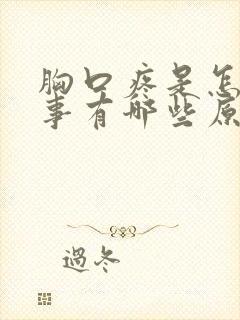 胸口疼是怎
事有哪些原
過冬